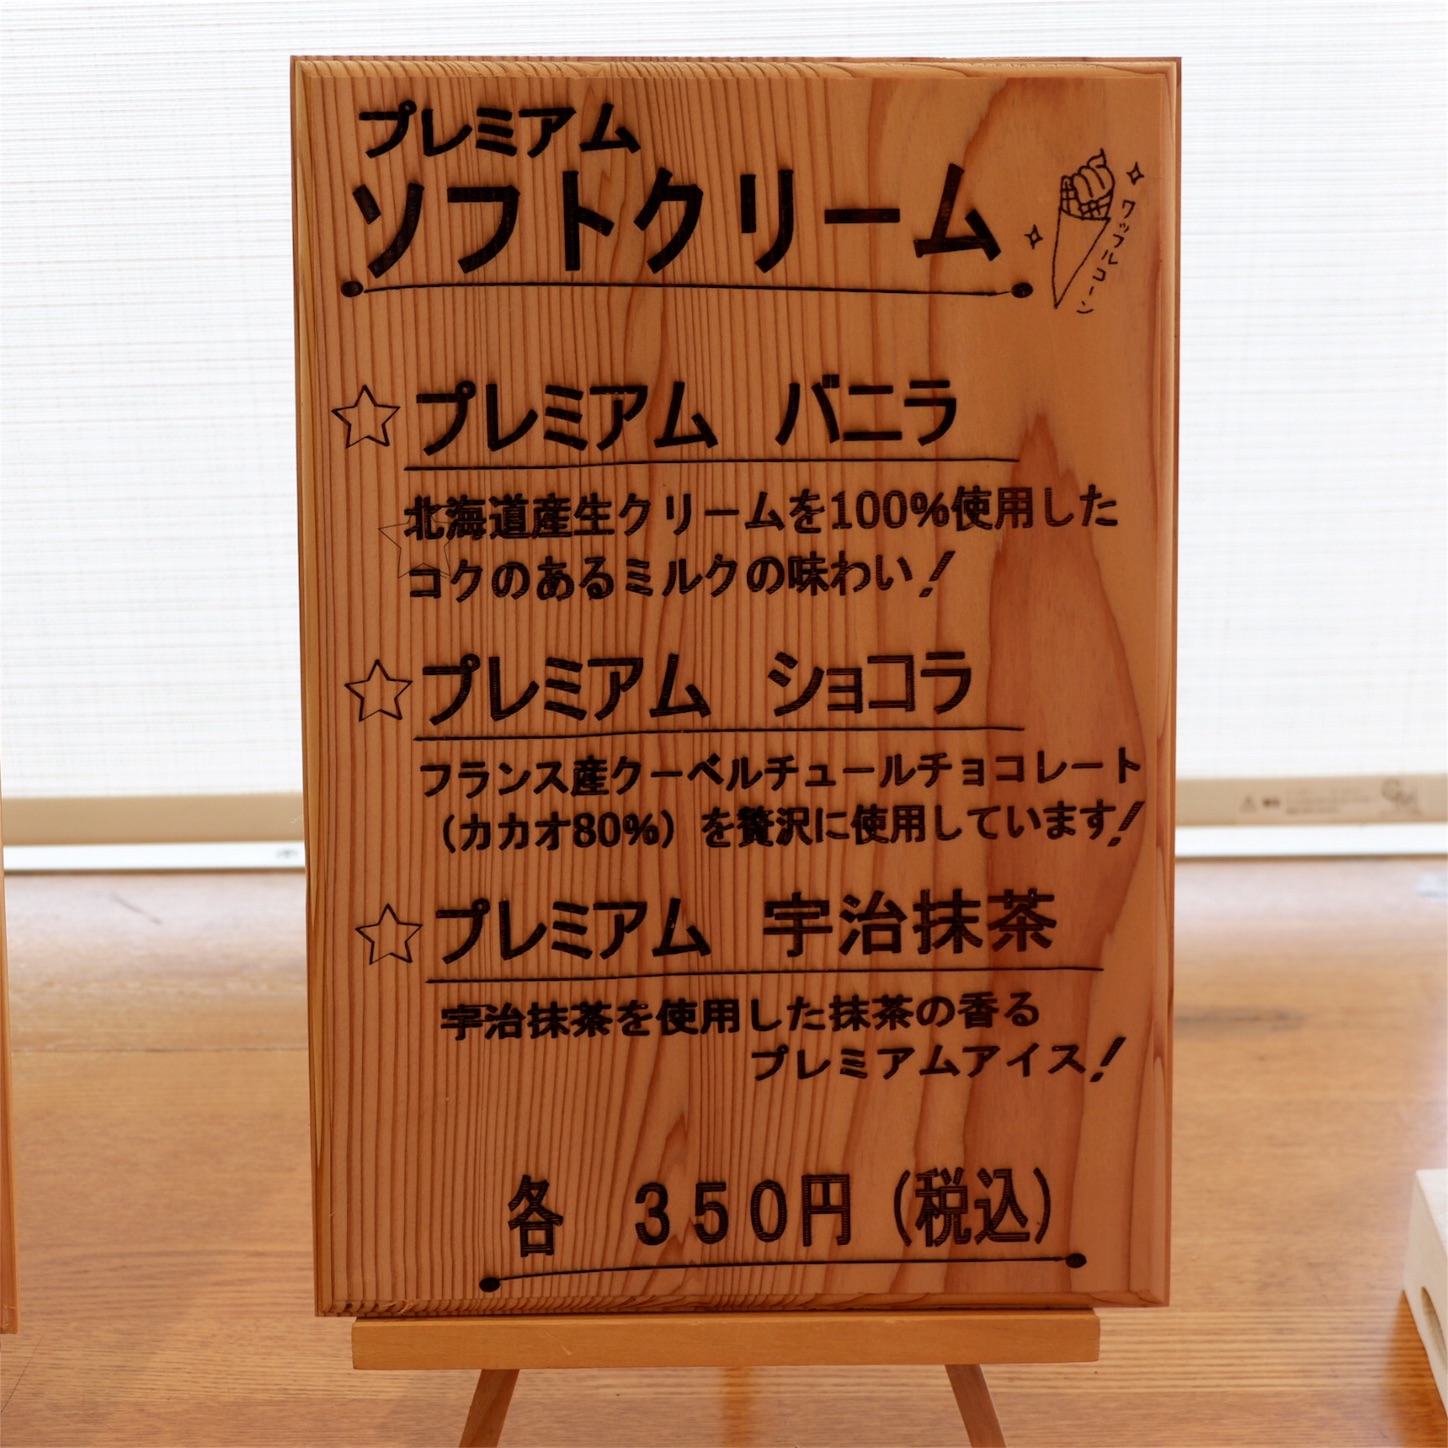 プレミアム
ソフトクリーム
ワッフルコーン
プレミアム バニラ
北海道産生クリームを100%使用した
コクのあるミルクの味わい!
プレミアム ショコラ
フランス産クーベルチュールチョコレート
(カカオ80%)を贅沢に使用しています!
プレミアム 宇治抹茶
宇治抹茶を使用した抹茶の香る
プレミアムアイス!
各 350円(税込)